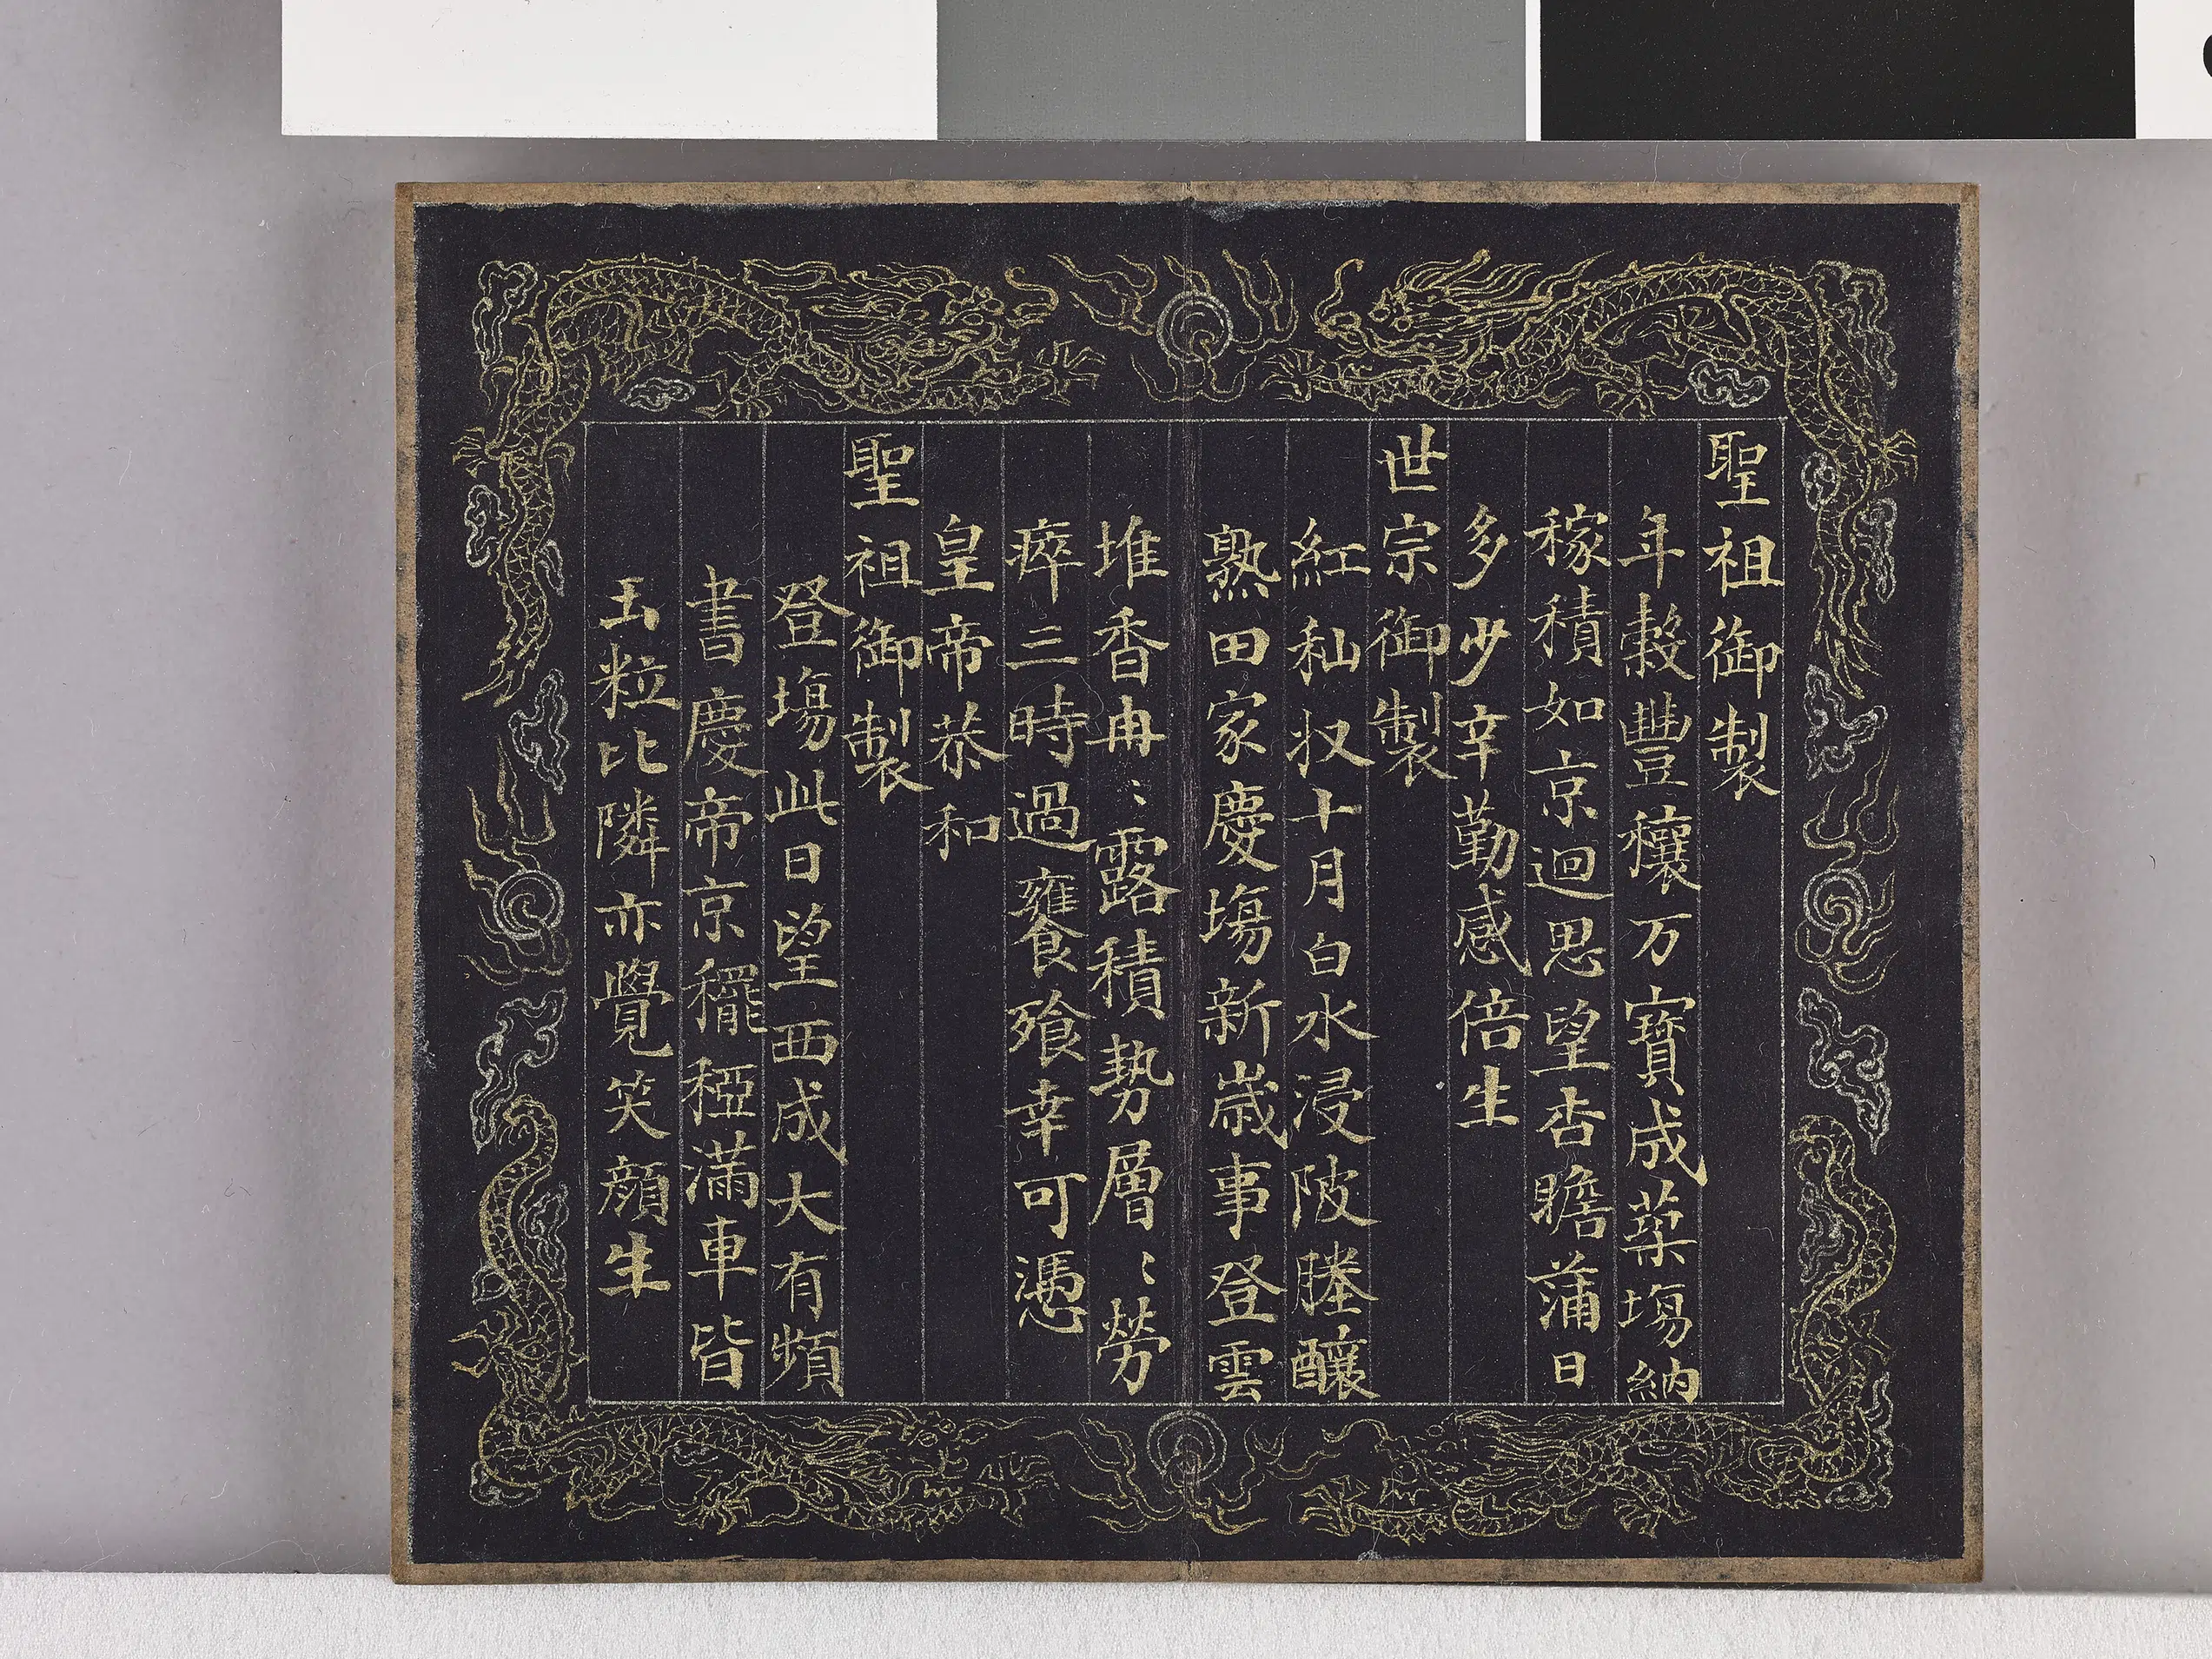 聖祖御製
年穀豐穰万寶成築塲納
稼積如京迴思望杏瞻蒲日
多少辛勤感倍生
世宗御製
紅秈収十月白水浸陂塍釀
熟田家慶塲新歳事登雲
堆香冉〻露積勢層〻勞
瘁三時過饔飱幸可憑
皇帝恭和
聖祖御製
登塲此日望西成大有頻
書慶帝京䆉稏滿車皆
玉粒比隣亦覺笑顔生